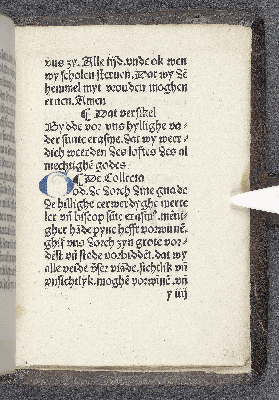 vns zy. Alle tijd. vnde ok wen
wy scholen steruen. Dat wy dē
hemmel myt vrouden moghen
eruen. Amen
¶ Dat versikel
Bydde vor vns hyllighe va-
der sunte erasme. dat wy weer-
dich weerden des loftes des al
mechtighē godes
¶ De Collecta
God. de dorch dine gnade
de hillighe eerwerdyghe merte
ler vn̄ biscop sūte erasmꝰ. mēni
gher hāde pyne hefft vorwūnē.
ghif vns dorch zyn grote vor-
dēst vn̄ stede vorbiddēt. dat wy
alle velde vnser viāde. sichtlik vn̄
vnsichtlyk. moghē vorwinnē. vn̄
y iiij